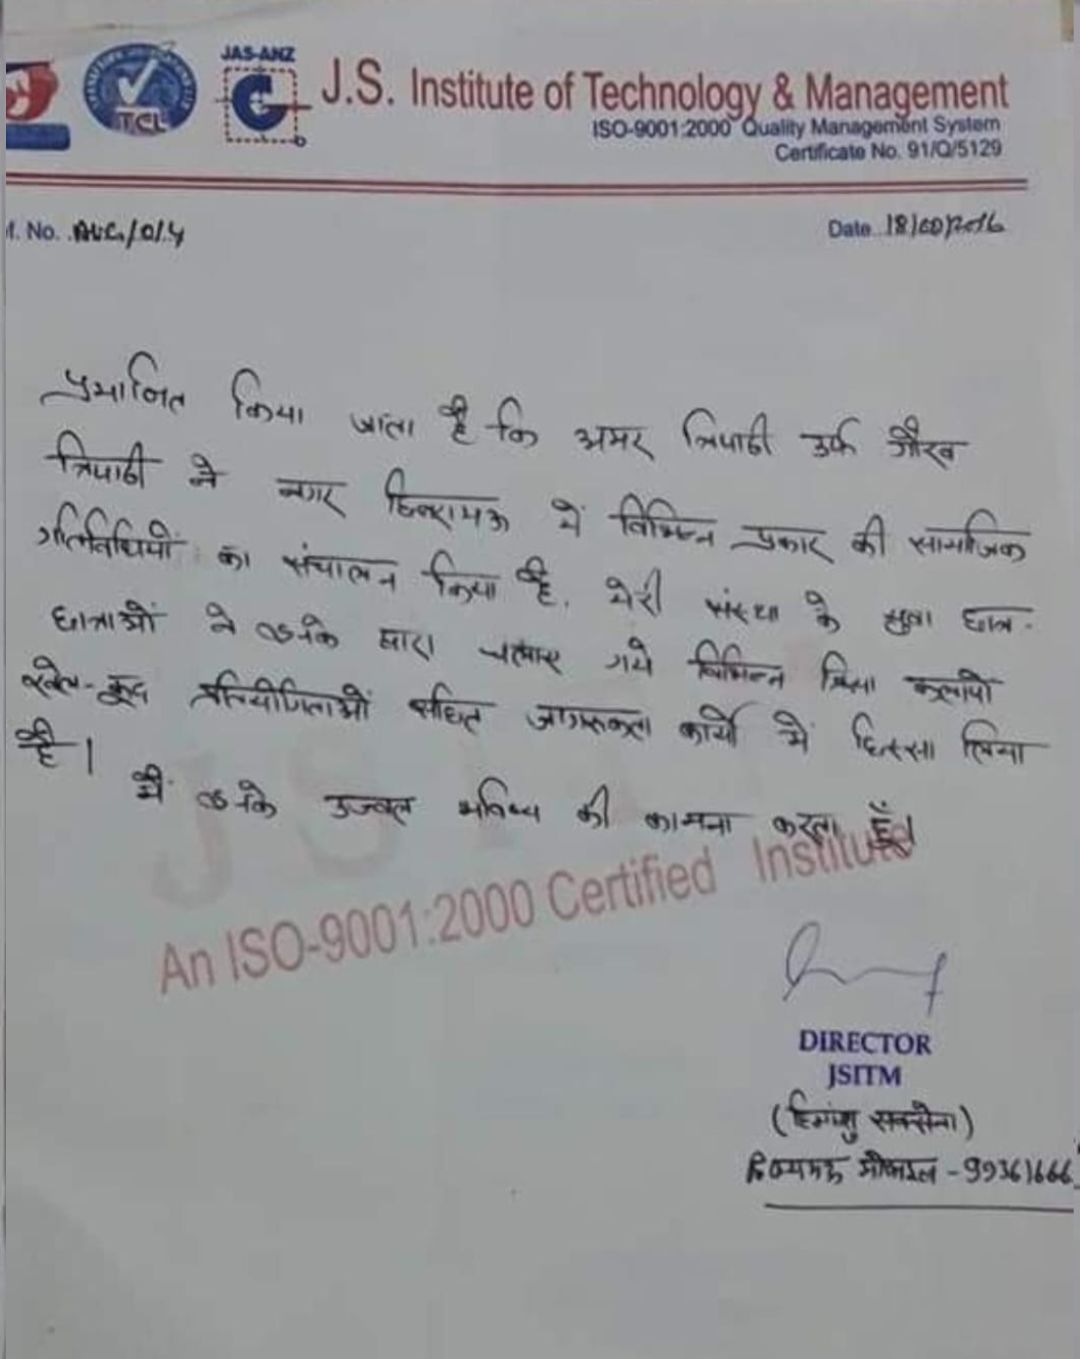 JAS-ANZ
TCL
J.S. Institute of Technology & Management
ISO-9001:2000 Quality Management System
Certificate No. 91/Q/5129
No.
Date 18/
प्रमानित किया जाता है कि अमर त्रिपाठी उर्फ गौरव
त्रिपाठी ने नगर छिबरामऊ में विभिन्न प्रकार की सामाजिक
गतिविधियों का संचालन किया है, मेरी संस्था के युवा छात्र-
छात्राओं ने उनके द्वारा चलाए गये विभिन्न क्रिया कलापो
खेल-कूद प्रतियोगिताओं सहित जागरूकता कार्यो में हिस्सा लिया
है।
मैं उनके उज्वल भविष्य की कामना करता हूँ।
An ISO-9001:2000 Certified Institute
DIRECTOR
JSITM
(हिमांशु सक्सेना)
-99361666